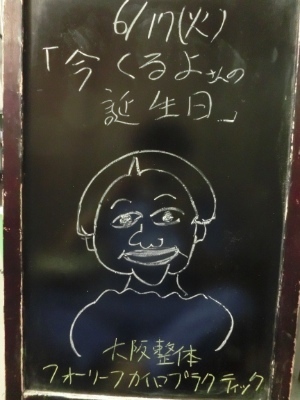 6/17(火)
「今くるよさんの
誕生日」
大阪整体
フォーリーフカイロプラクティック